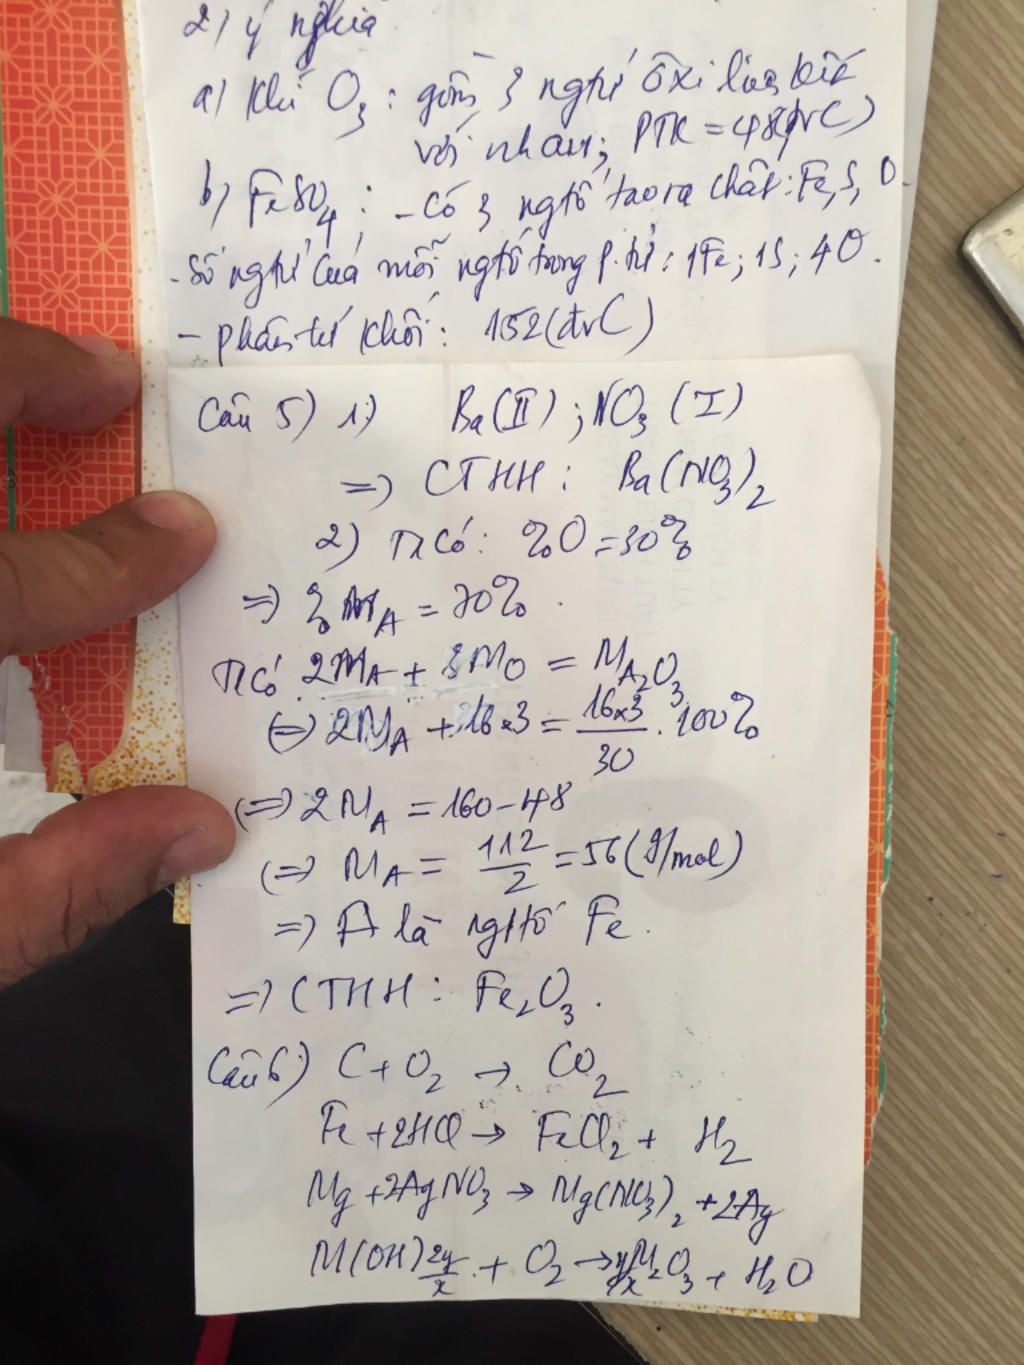 2) ý nghĩa
a) Khí O₃ : gồm 3 ngtử ôxi liên kết
với nhau; PTK = 48(đvC)
b) FeSO₄ : - Có 3 ngtố tạo ra chất: Fe, S, O.
- Số ngtử của mỗi ngtố trong p.tử: 1Fe; 1S; 4O.
- phân tử khối: 152(đvC)
Câu 5) 1) Ba(II) ; NO₃ (I)
=> CTHH : Ba(NO₃)₂
2) Ta có: %O = 30%
=> % M_A = 70%.
Ta có 2M_A + 3M_O = M_A₂O₃
<=> 2M_A + 16×3 = 16×3/30 . 100%
<=> 2M_A = 160 - 48
<=> M_A = 112/2 = 56 (g/mol)
=> A là ngtố Fe.
=> CTHH : Fe₂O₃.
Câu 6) C + O₂ → CO₂
Fe + 2HCl → FeCl₂ + H₂
Mg + 2AgNO₃ → Mg(NO₃)₂ + 2Ag
M(OH)2y/x + O₂ → M₂O₃ + H₂O